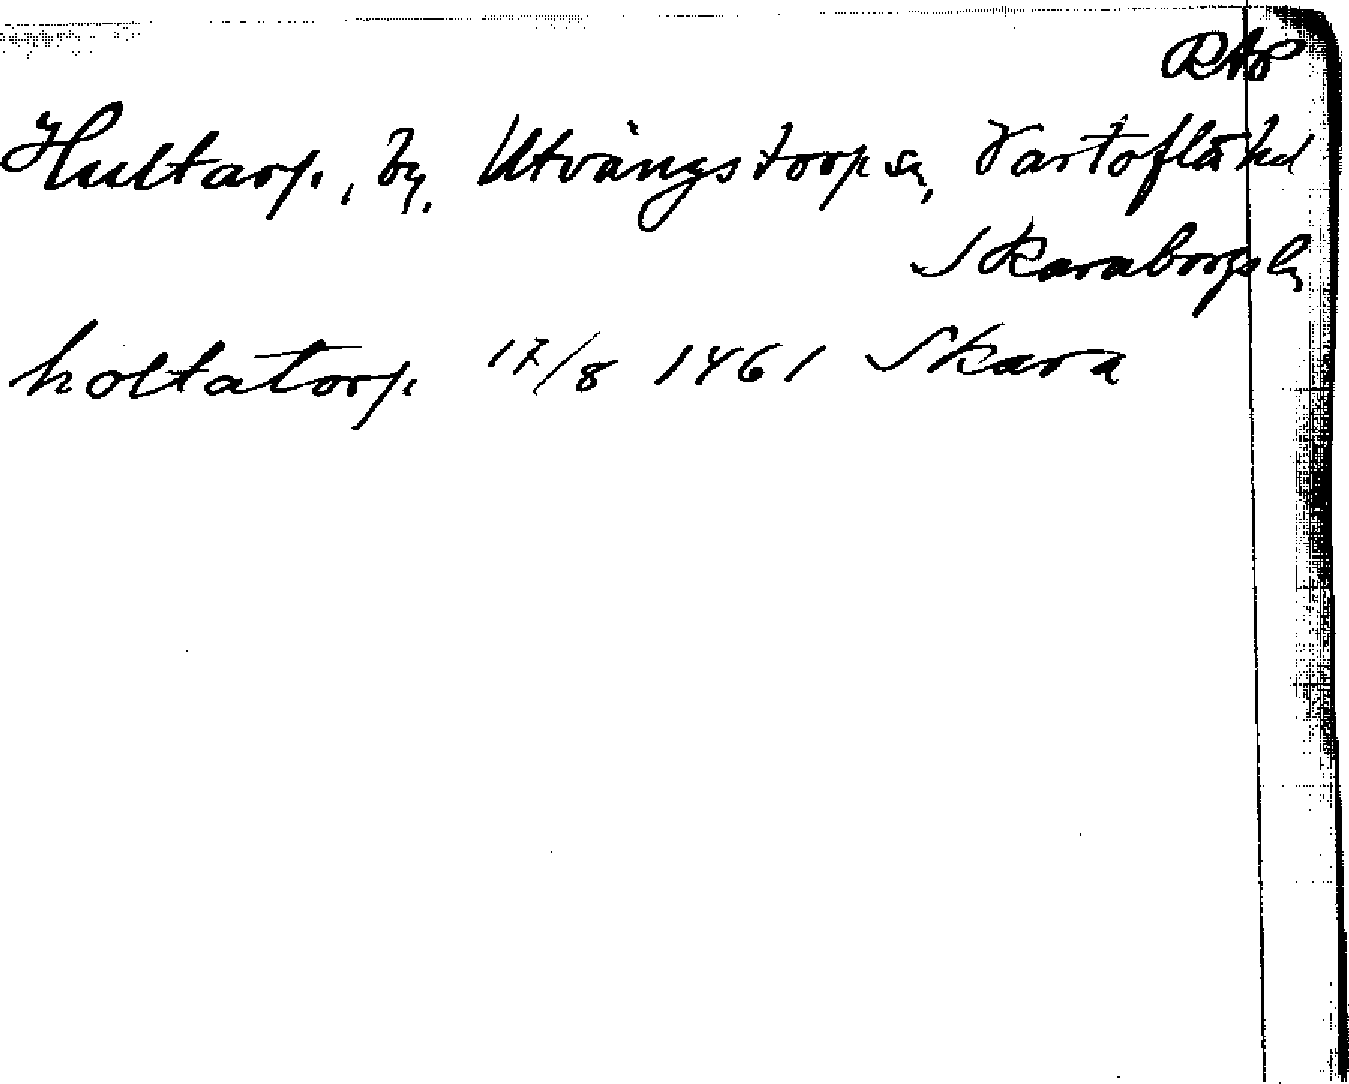 RAP
Hultarp, by, Utvängstorp sn, Vartofta hd
Skaraborgs l
holtatorp 17/8 1461 Skara